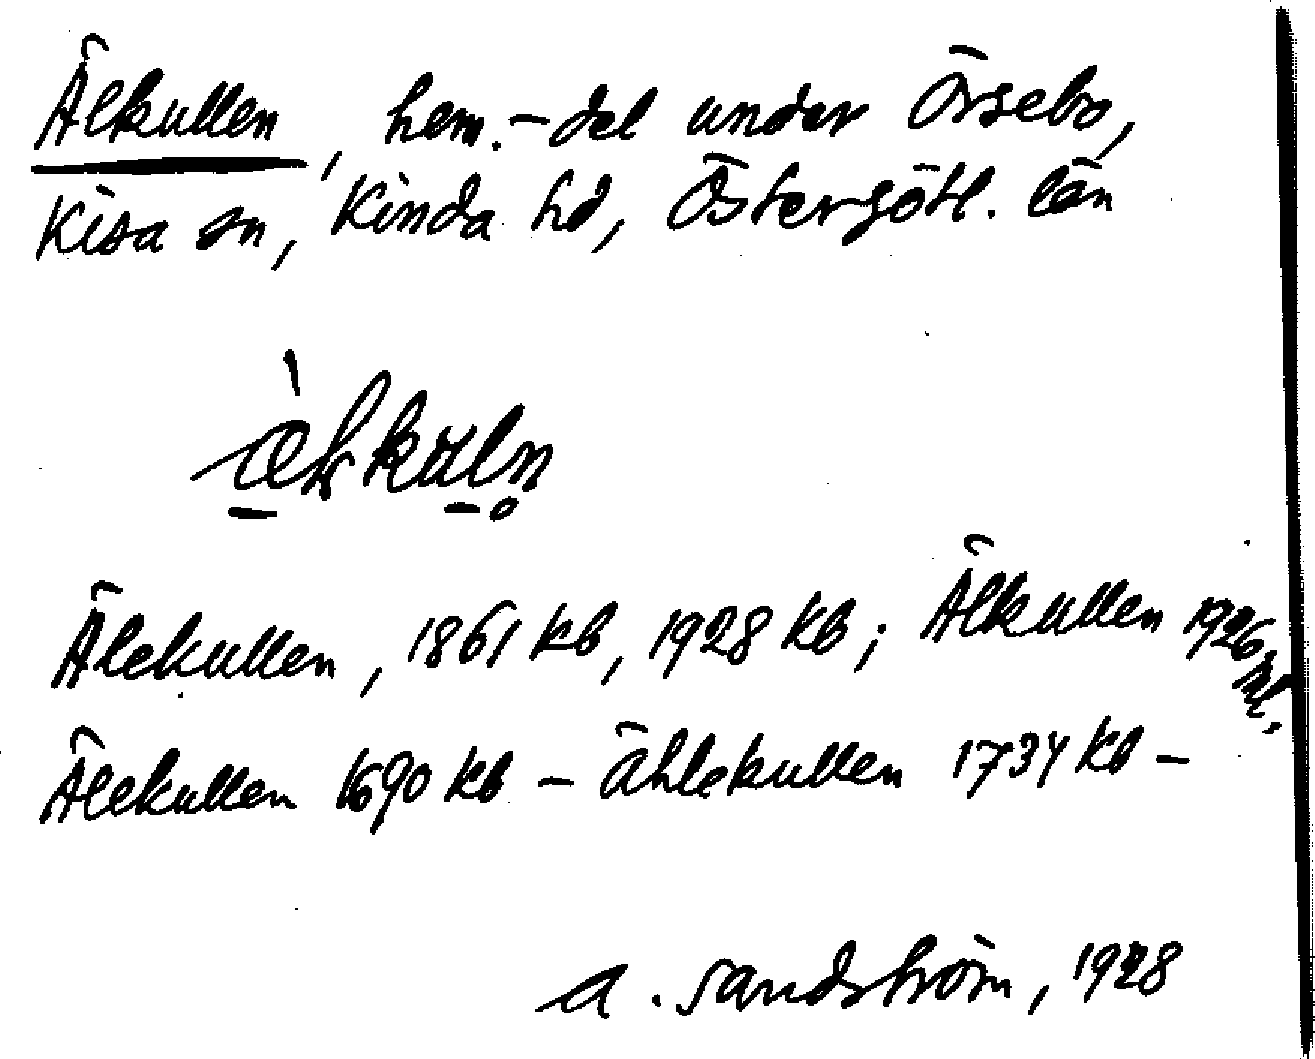 Älkullen, hem.-del under Örsebo,
Kisa sn, Kinda hd, Östergötl. län
Älekullen, 1861 kb, 1928 kb; Älkullen 1926
Älekullen 1690 kb - ählekullen 1734 kb -
A. Sandström, 1928